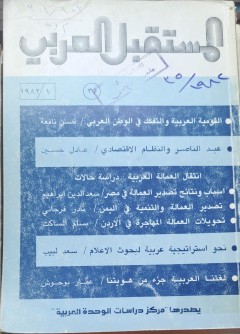 المستقبل العربي
١٩٨٢/١
٣٥
القومية العربية والتفكك في الوطن العربي / حسن نافعة
عبد الناصر والنظام الاقتصادي / عادل حسين
انتقال العمالة العربية : دراسة حالات
أسباب ونتائج تصدير العمالة في مصر / سعد الدين ابراهيم
تصدير العمالة والتنمية في اليمن / نادر فرجاني
تحويلات العمالة المهاجرة في الاردن / بسام الساكت
نحو استراتيجية عربية لبحوث الاعلام / سعد لبيب
لغتنا العربية جزء من هويتنا / عمار بوحوش
يصدرها "مركز دراسات الوحدة العربية"